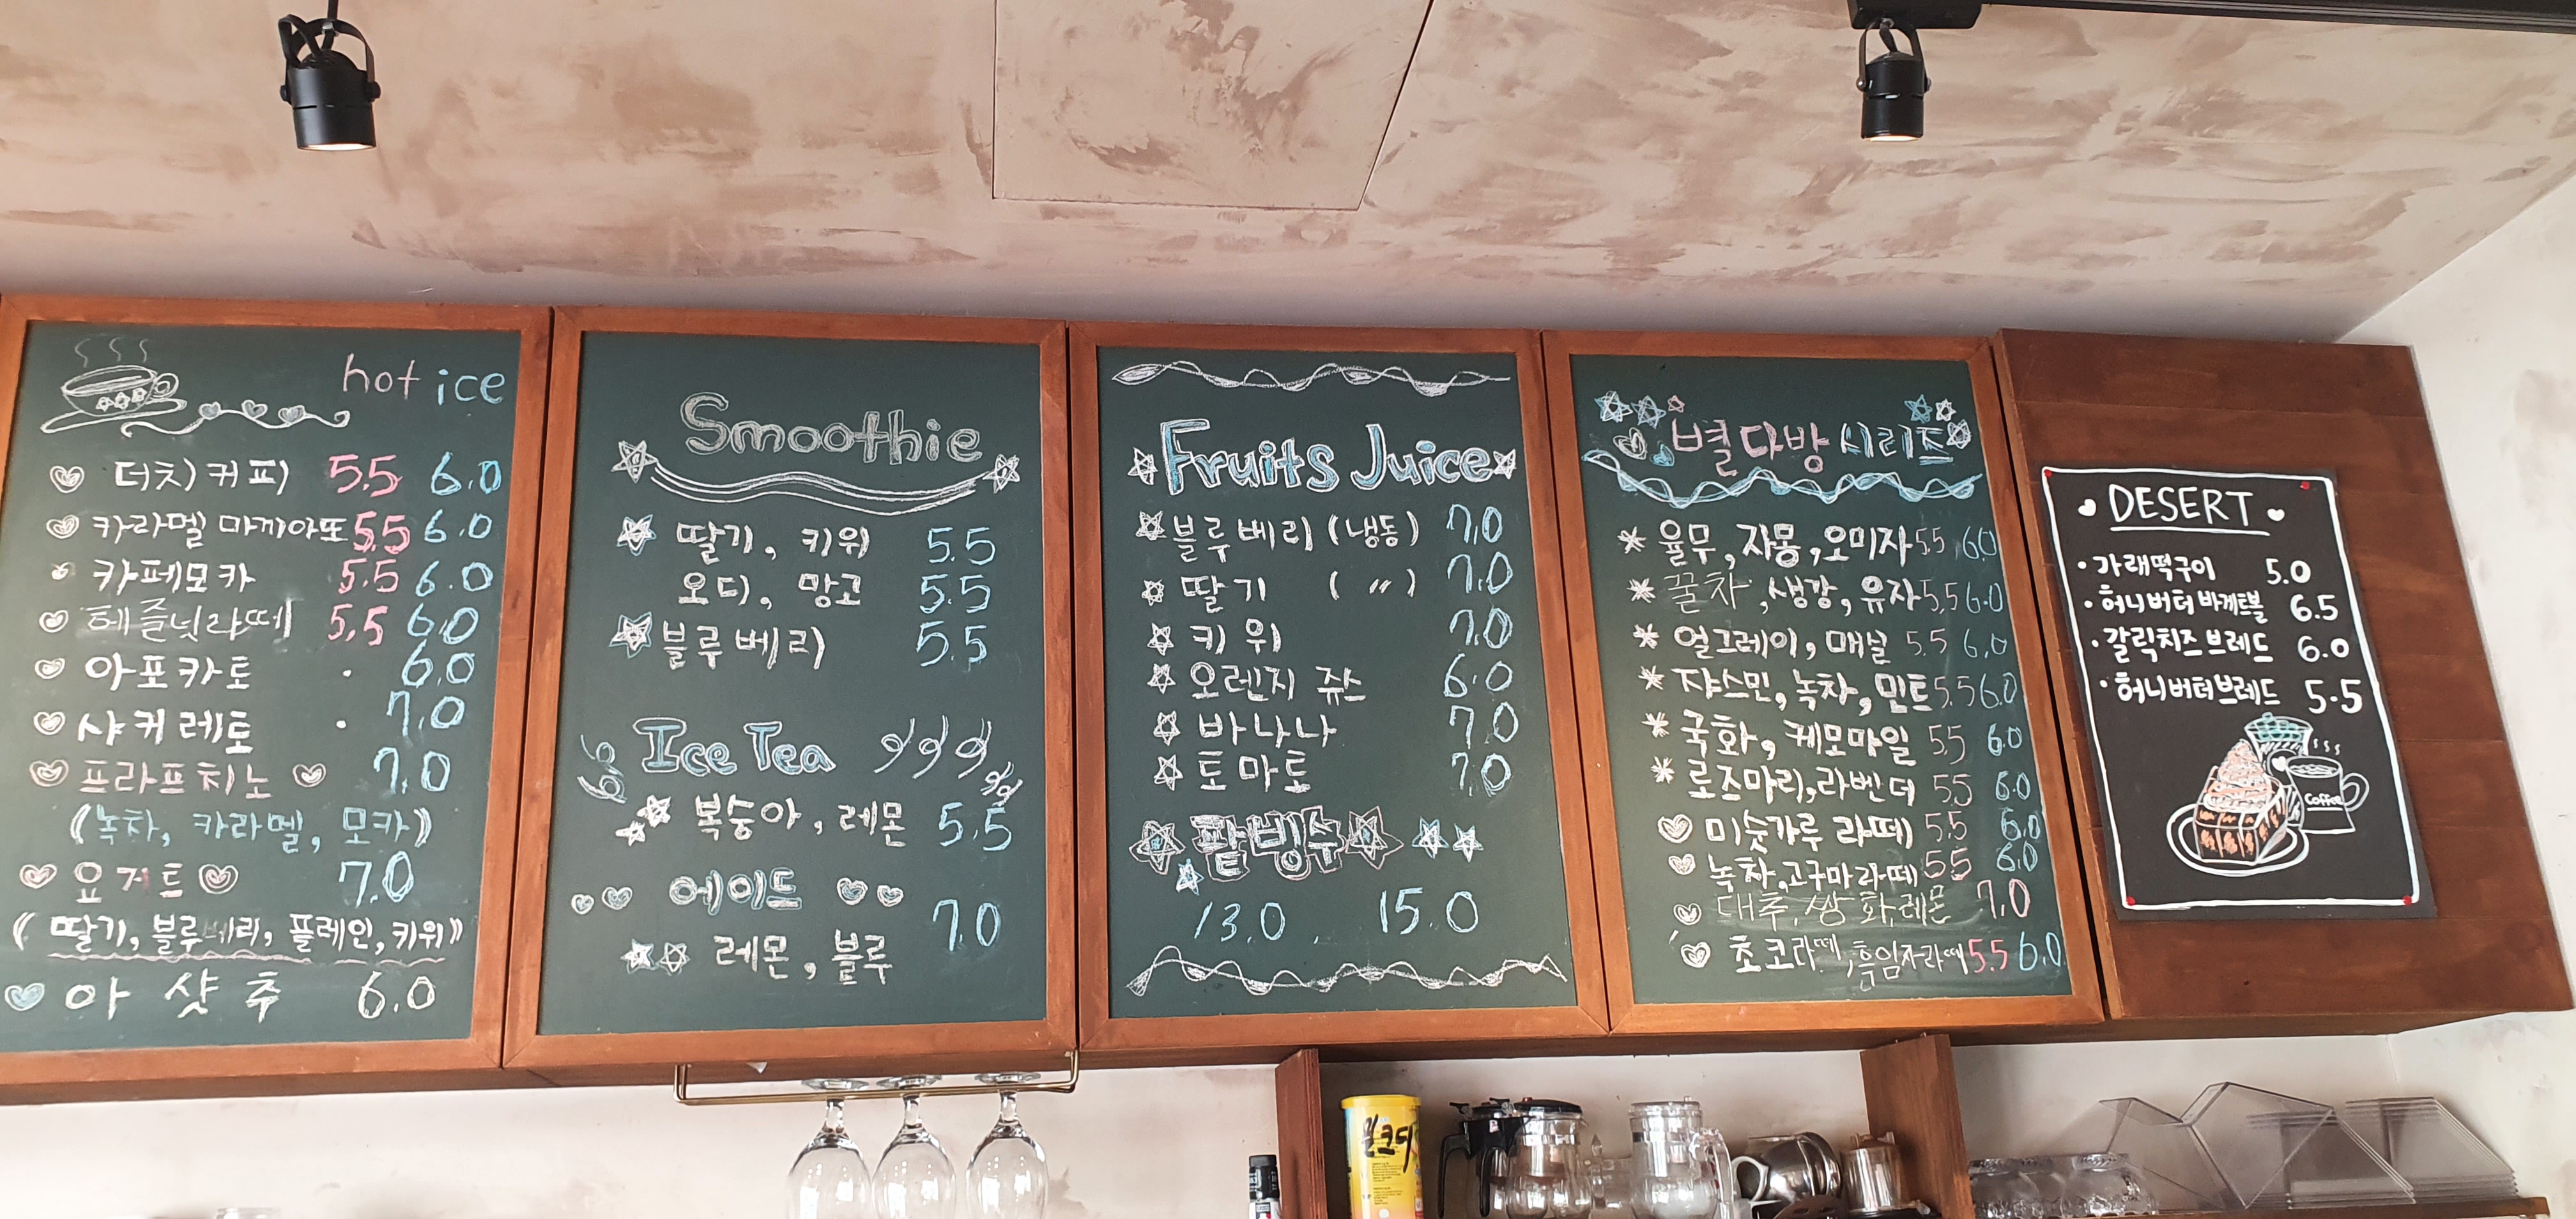 hot ice
더치커피 5.5 6.0
카라멜 마끼아또 5.5 6.0
카페모카 5.5 6.0
헤즐넛라떼 5.5 6.0
아포카토 . 6.0
샤커레토 . 7.0
프라프치노 7.0
(녹차, 카라멜, 모카)
요거트 7.0
(딸기, 블루베리, 플레인, 키위)
아 샷 추 6.0
Smoothie
딸기, 키위 5.5
오디, 망고 5.5
블루베리 5.5
Ice Tea
복숭아, 레몬 5.5
에이드
레몬, 블루 7.0
Fruits Juice
블루베리 (냉동) 7.0
딸기 ( 〃 ) 7.0
키위 7.0
오렌지 쥬스 6.0
바나나 7.0
토마토 7.0
팥빙수
13.0 , 15.0
별다방 시리즈
율무, 자몽, 오미자 5.5 6.0
꿀차, 생강, 유자 5.5 6.0
얼그레이, 매실 5.5 6.0
쟈스민, 녹차, 민트 5.5 6.0
국화, 케모마일 5.5 6.0
로즈마리, 라벤더 5.5 6.0
미숫가루 라떼 5.5 6.0
녹차, 고구마라떼 5.5 6.0
대추, 쌍화, 레몬 7.0
초코라떼, 흑임자라떼 5.5 6.0
DESERT
· 가래떡구이 5.0
· 허니버터 바게트볼 6.5
· 갈릭치즈 브레드 6.0
· 허니버터브레드 5.5
Coffee